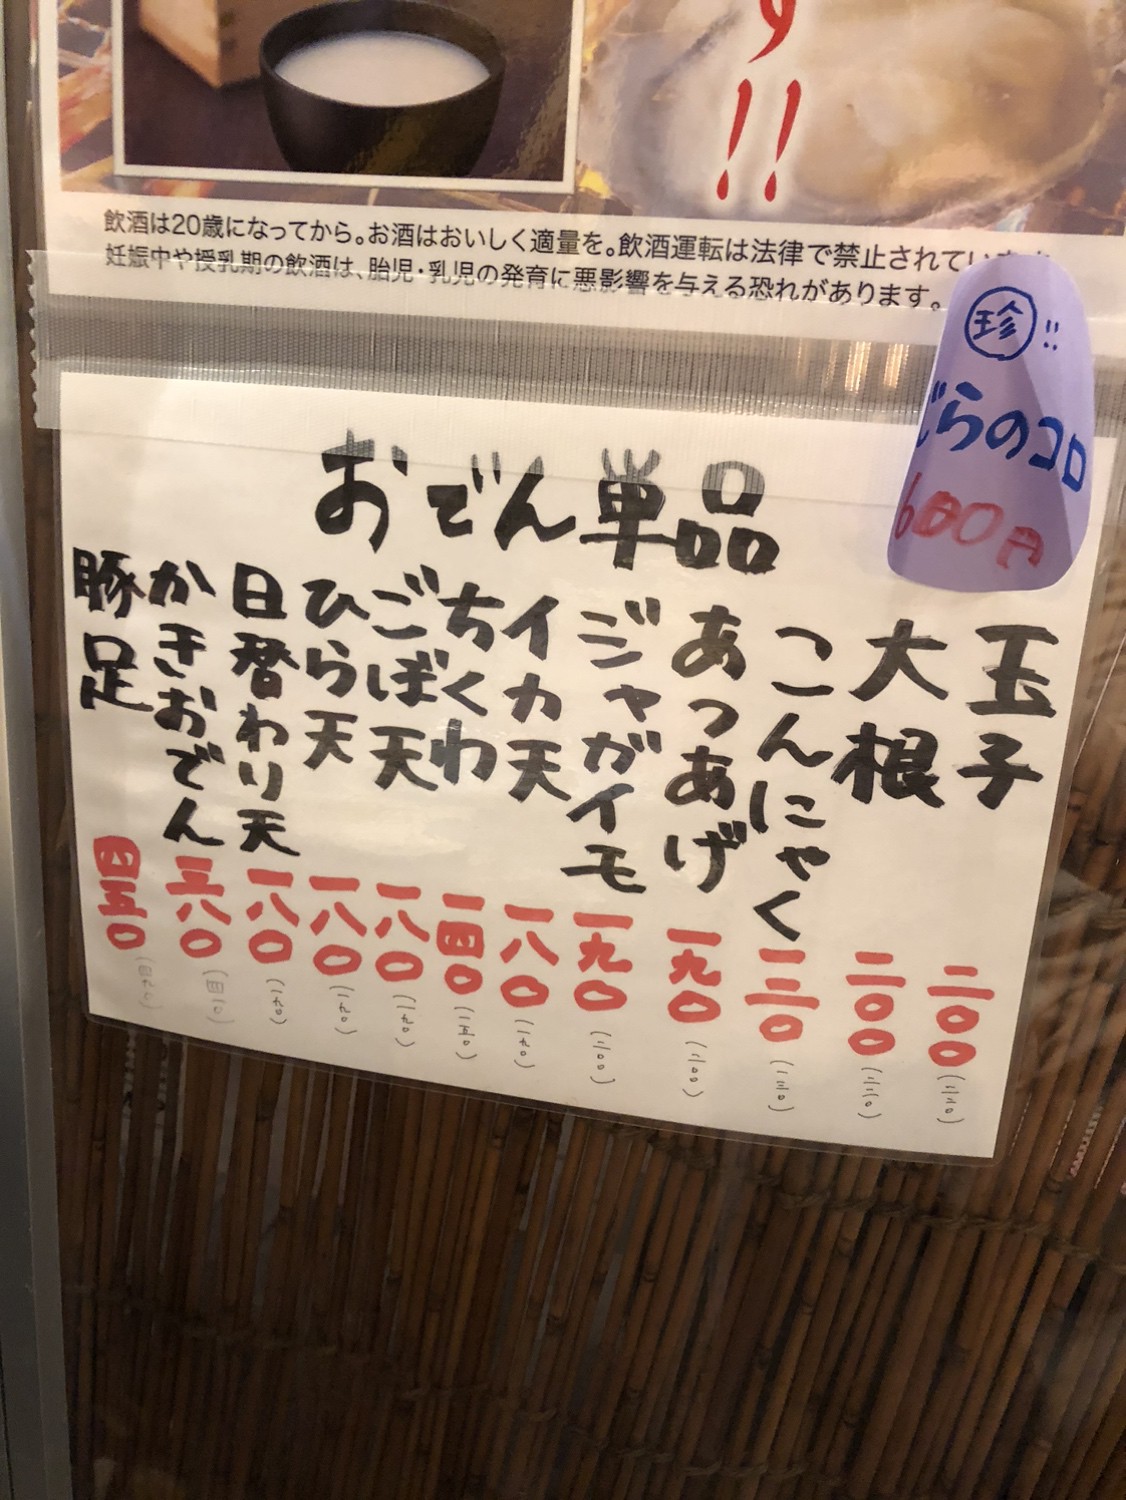 す
!!
飲酒は20歳になってから。お酒はおいしく適量を。飲酒運転は法律で禁止されています
妊娠中や授乳期の飲酒は、胎児・乳児の発育に悪影響を与える恐れがあります。
珍!!
らのコロ
600円
おでん単品
玉子 二〇〇 (二二〇)
大根 二〇〇 (二二〇)
こんにゃく 一二〇 (一三〇)
あつあげ 一九〇 (二〇〇)
ジャガイモ 一九〇 (二〇〇)
イカ天 一八〇 (一九〇)
ちくわ 一四〇 (一五〇)
ごぼ天 一八〇 (一九〇)
ひら天 一八〇 (一九〇)
日替わり天 一八〇 (一九〇)
かきおでん 三八〇
豚足 四五〇